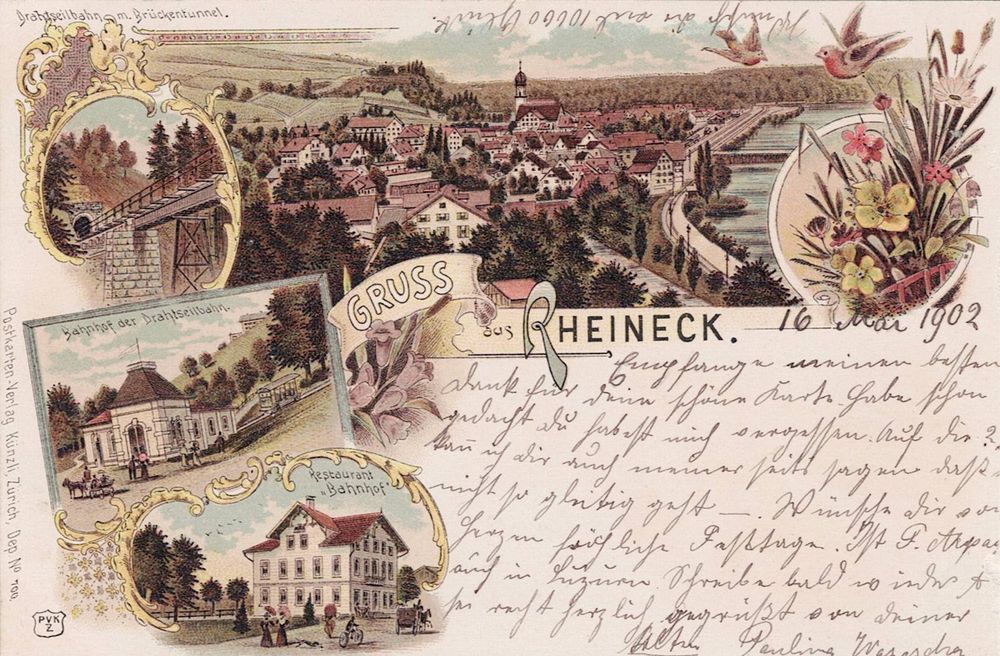 Drahtseilbahn m. Brückentunnel.
Ich wünsche dir viel 10000 Glück
Bahnhof der Drahtseilbahn.
Restaurant
„Bahnhof"
GRUSS
aus RHEINECK.
16 Mai 1902
Empfange meinen besten
Dank für deine schöne Karte habe schon
gedacht du habest mich vergessen. Auf die ?
kann ich dir auch meiner seits sagen daß
nicht so gleitig geht —. Wünsche dir von
Herzen fröhliche Festtage. Ist F.
auch in Luzern Schreibe bald wieder &
sei recht herzlich gegrüßt von deiner
Alten Paulina
Postkarten-Verlag Künzli, Zürich, Dep. No 700.
PVK
Z